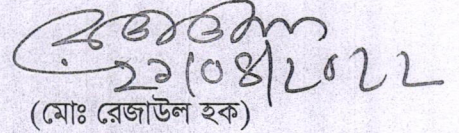 ২১/০৪/২০২২
(মোঃ রেজাউল হক)